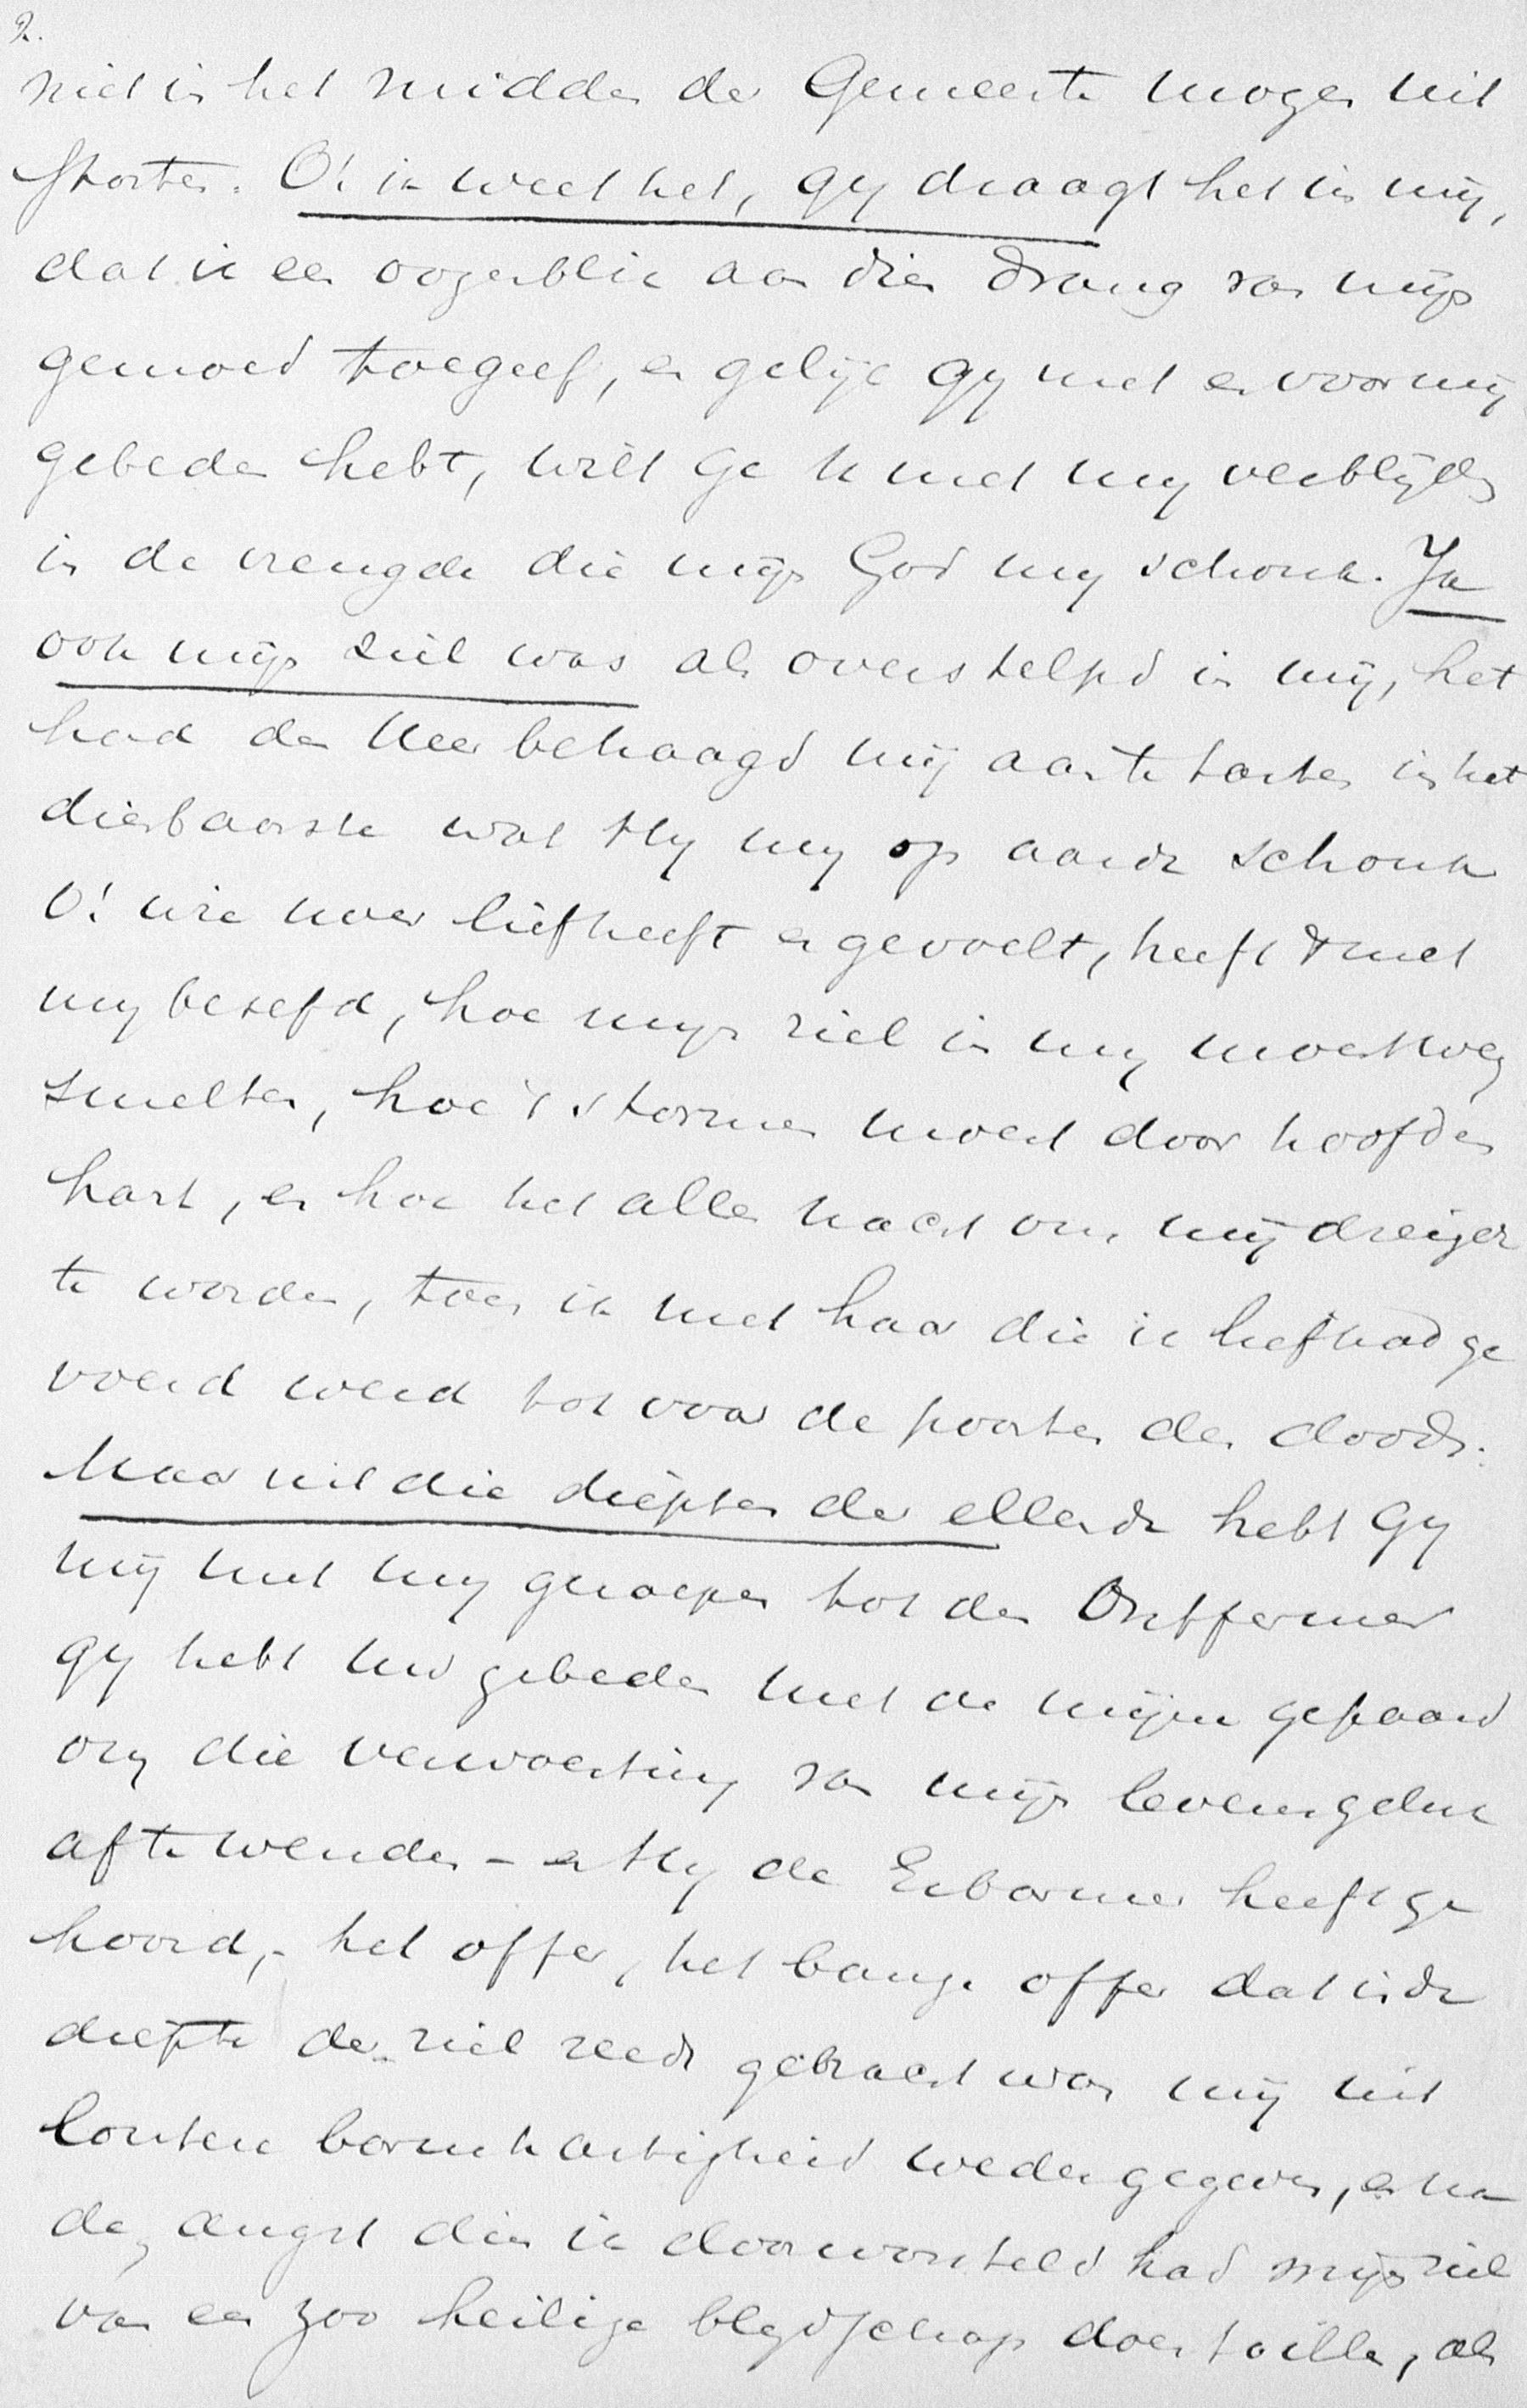 2.
niet in het midden der Gemeente mogen uit
storten. O! ik weet het, gy draagt het in mij,
dat ik een oogenblik aan dien drang van mijn
gemoed toegeef, en gelijk gy met en voor mij
gebeden hebt, wilt Ge U met my verblijden
in de vreugde die mijn God my schonk. Ja
ook mijn ziel was als overstelpd in mij, het
had den Heer behaagd mij aan te tasten in het
dierbaarste wat Hy my op aarde schonk
O! wie uwer liefheeft en gevoelt, heeft 't met
my beseft, hoe mijn ziel in my moest weg
smelten, hoe 't stormen moest door hoofd en
hart, en hoe het alles nacht om mij dreigde
te worden, toen ik met haar die ik liefhad ge
voerd werd tot voor de poorten des doods.
Maar uit die diepten der ellende hebt Gy
mij met my geroepen tot den Ontfermer
gy hebt uw gebeden met de mijne gepaard
om die verwoesting van mijn levensgeluk
af te wenden - en Hy de Erbarmer heeft ge
hoord, - het offer, het bange offer dat in de
diepte der ziel reeds gebracht was mij uit
loutere barmhartigheid wedergegeven, en na
den angst dien ik doorworsteld had mijn ziel
van een zoo heilige blydschap doen trillen, als